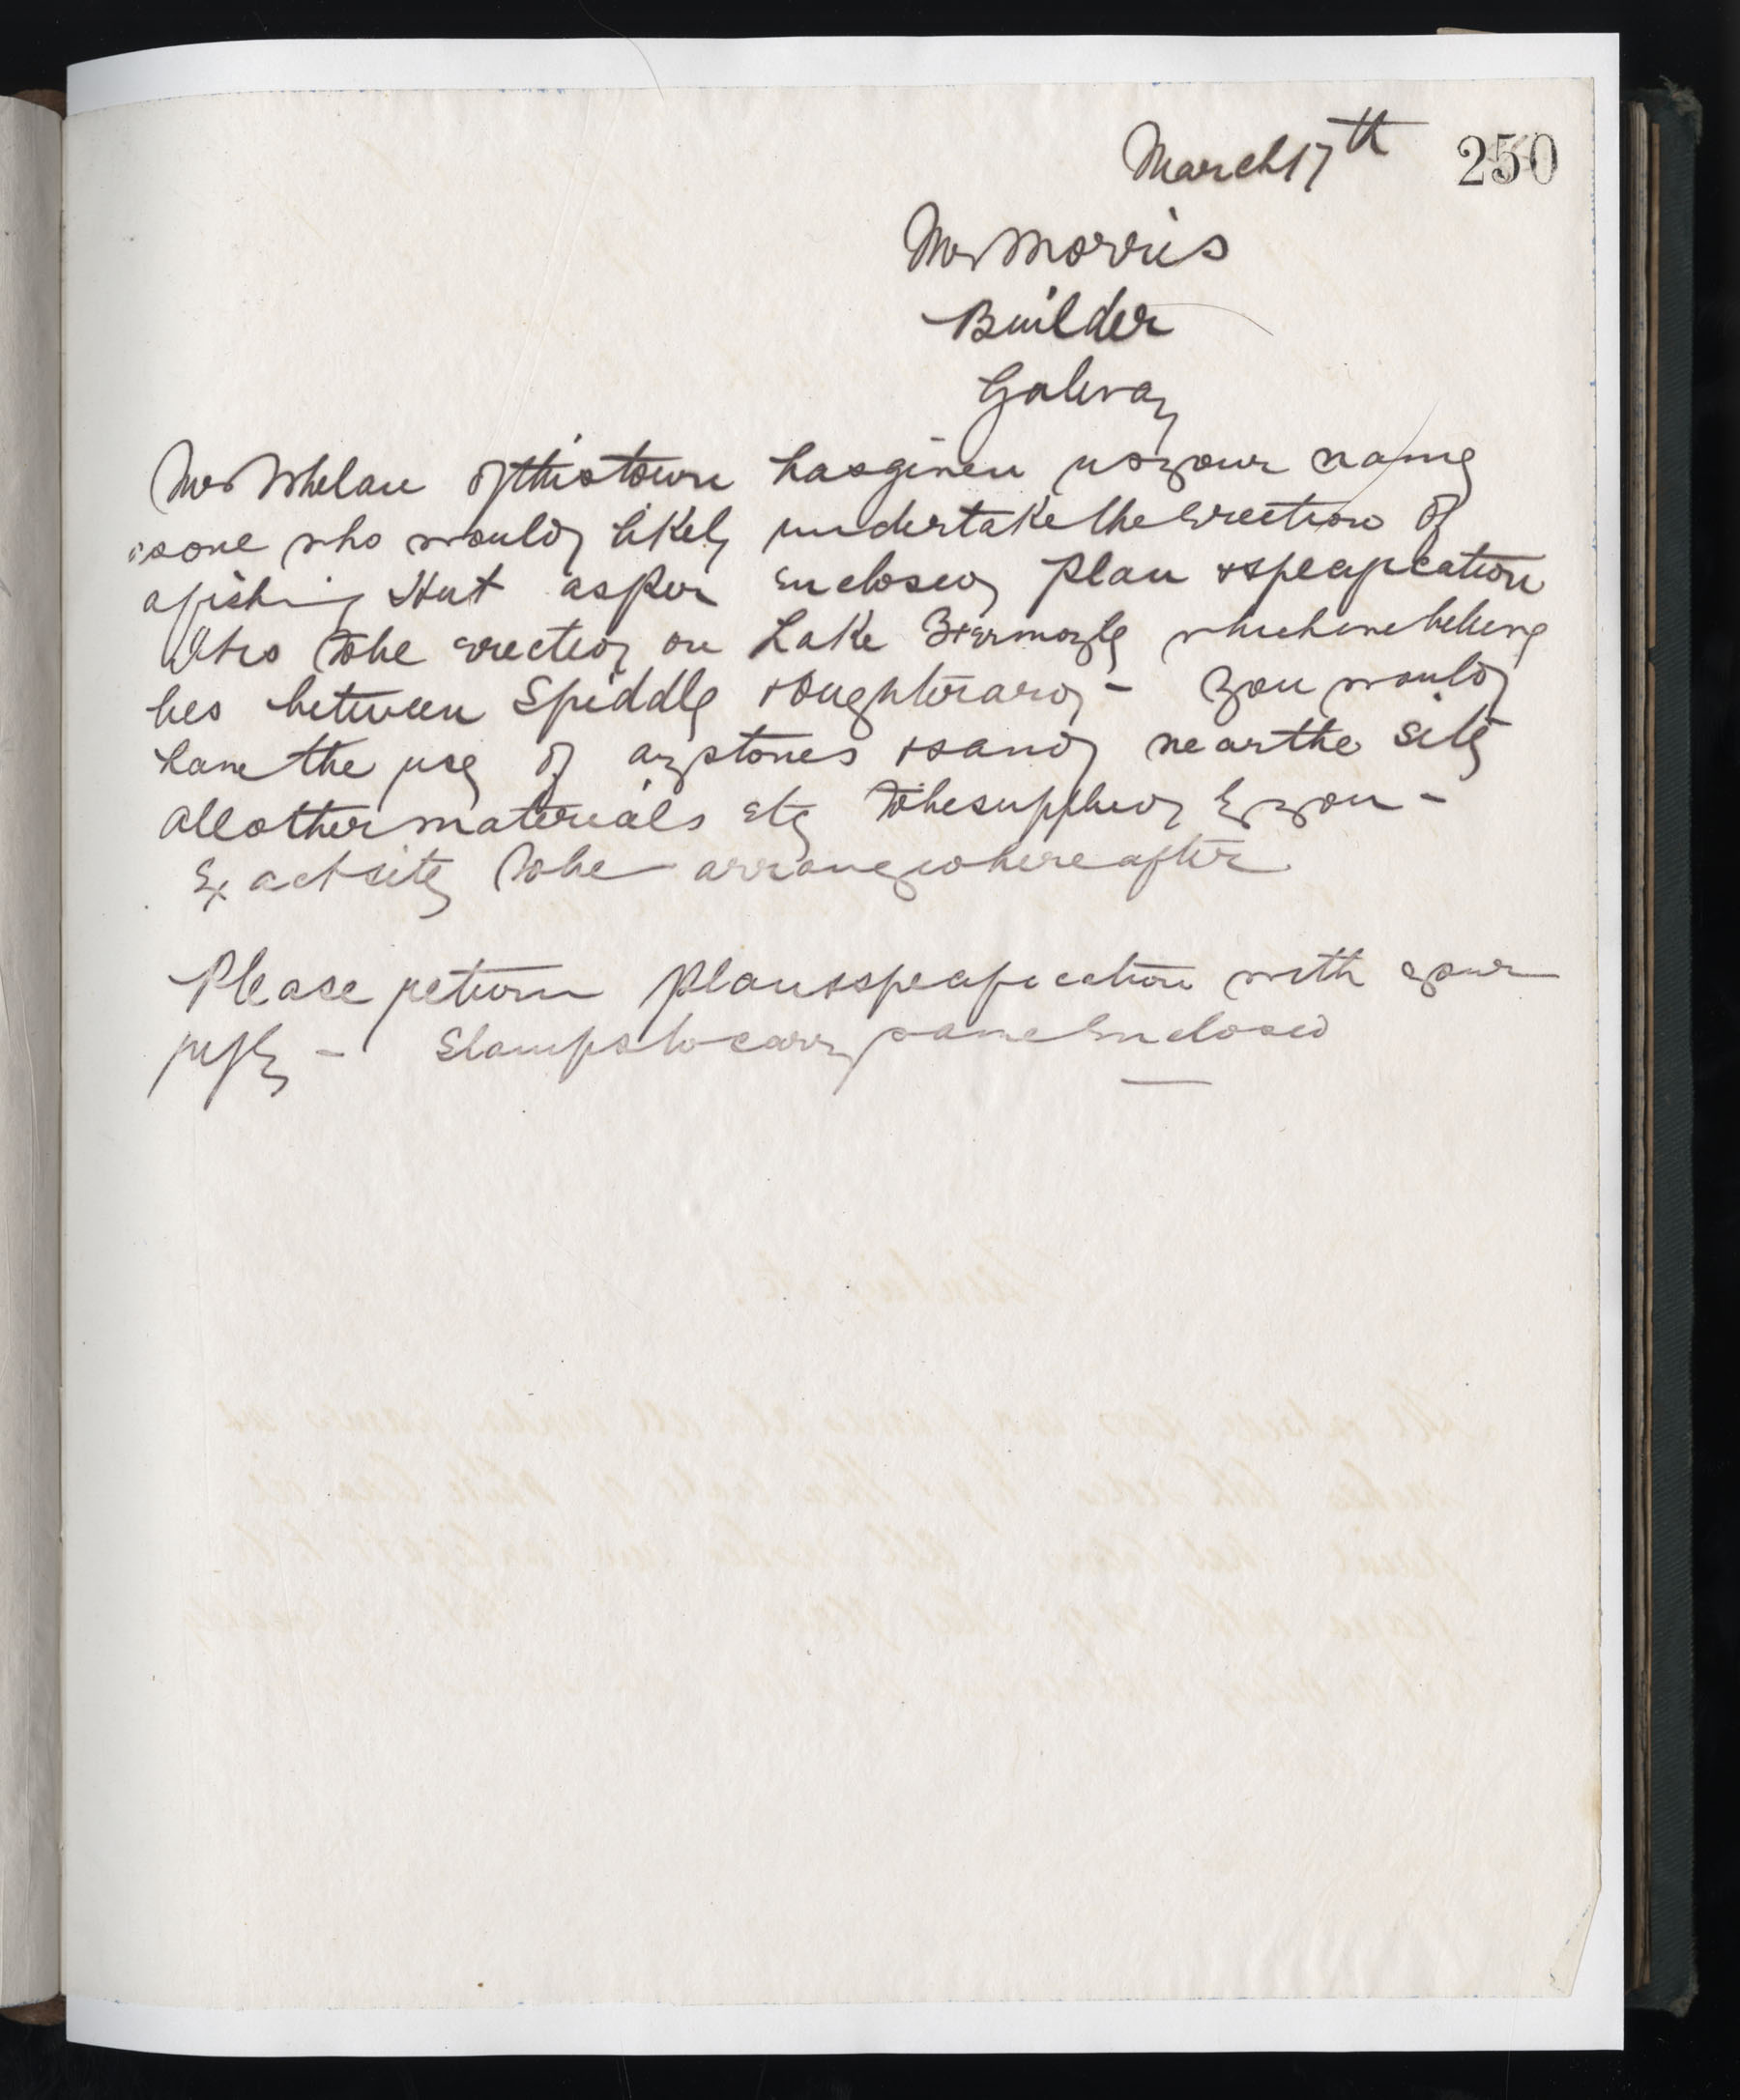 March 17th 250
Mr Morris
Builder
Galway
Mr Whelan of this town has given us your name
as one who would likely undertake the erection of
a fishing Hut as per enclosed plan & specification
It is to be erected on Lake which we believe
lies between Spiddle & Oughterard - You would
have the use of any stones & sand near the site
All other materials etc to be supplied by you -
Exact site to be arranged hereafter
Please return plan & specification with your
reply - Stamps to carry same enclosed